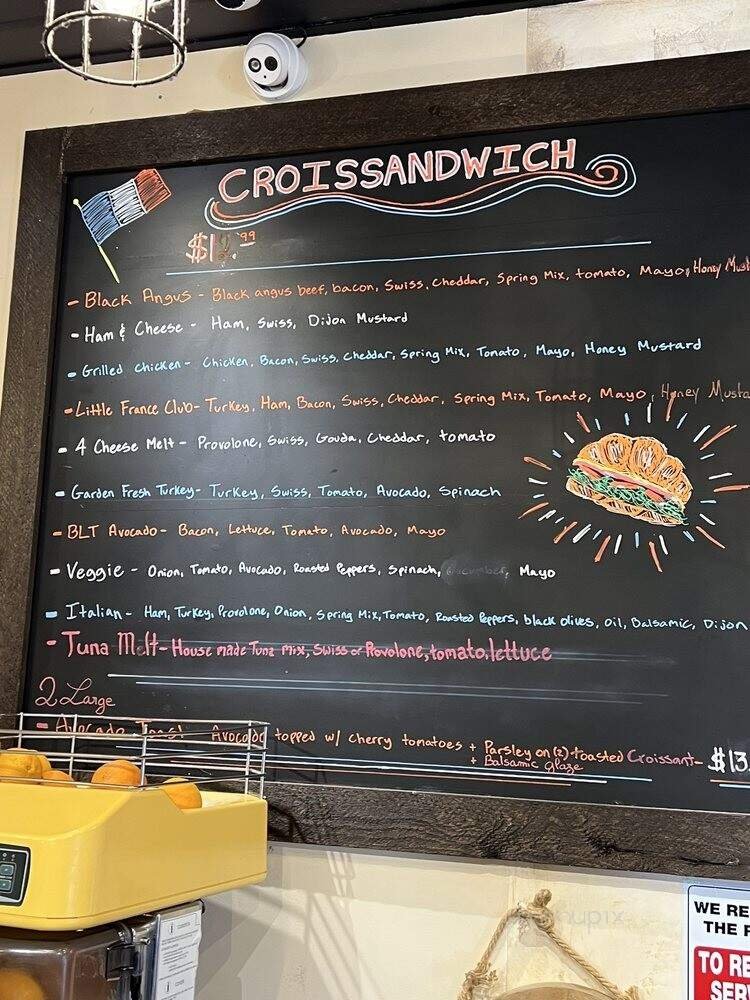 CROISSANDWICH
- Black Angus - Black angus beef, bacon, Swiss, Cheddar, Spring Mix, tomato, Mayo, Honey
- Ham & Cheese - Ham, Swiss, Dijon Mustard
- Grilled Chicken - Chicken, Bacon, Swiss, Cheddar, Spring Mix, Tomato, Mayo, Honey Mustard
- Little France Club - Turkey, Ham, Bacon, Swiss, Cheddar, Spring Mix, Tomato, Mayo, Honey
- 4 Cheese Melt - Provolone, Swiss, Gouda, Cheddar, tomato
- Garden Fresh Turkey - Turkey, Swiss, Tomato, Avocado, Spinach
- BLT Avocado - Bacon, Lettuce, Tomato, Avocado, Mayo
- Veggie - Onion, Tomato, Avocado, Roasted Peppers, Spinach, Mayo
- Italian - Ham, Turkey, Provolone, Onion, Spring Mix, Tomato, Roasted Peppers, black olives, oil, Balsamic, Dijon
- Tuna Melt - House made Tuna Mix, Swiss or Provolone, tomato, lettuce
2 Large
- Avocado Toast - Avocado topped w/ cherry tomatoes + Parsley on (2) toasted Croissant - $13.
+ Balsamic glaze
WE RE
THE
TO RE
SER